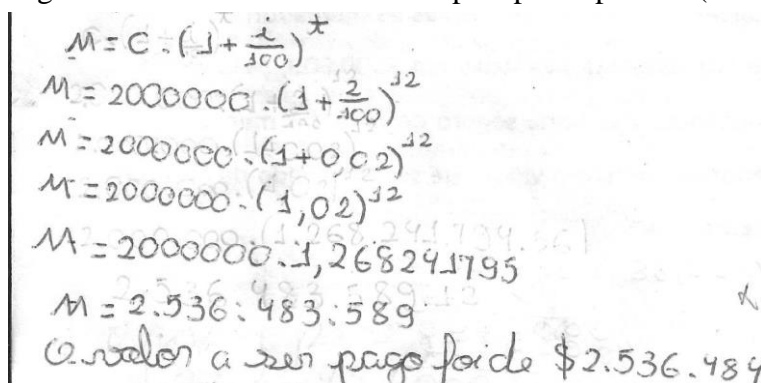 M = C . (1 + i/100)^t
M = 2000000 . (1 + 2/100)^12
M = 2000000 . (1 + 0,02)^12
M = 2000000 . (1,02)^12
M = 2000000 . 1,268241795
M = 2.536.483.589
O valor a ser pago foi de $2.536.484